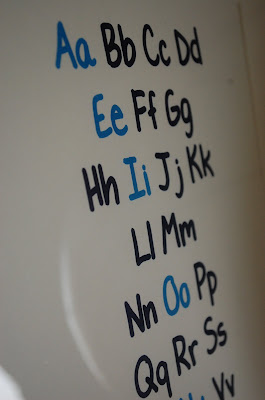 Aa Bb Cc Dd
Ee Ff Gg
Hh Ii Jj Kk
Ll Mm
Nn Oo Pp
Qq Rr Ss
Vv